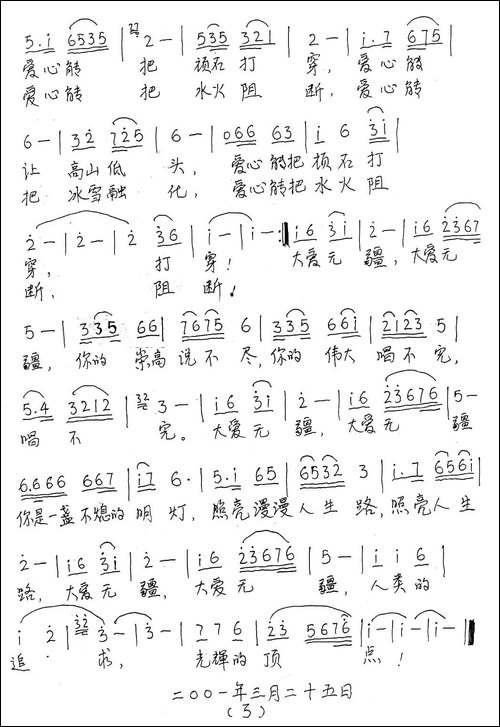 5.i 6535 | 32 2 — | 535 321 | 2 — | i.7 675 |
爱心能 把 顽石 打 穿, 爱心能
爱心能 把 水火 阻 断, 爱心能
6 — | 32 725 | 6 — | 066 63 | i 6 3i |
让 高山低 头, 爱心能把顽石 打
把 冰雪融 化, 爱心能把水火 阻
2 — | 2 — | 2 36 | i — | i — :‖ i6 3i | 2 — | i6 2367
穿, 打 穿! 大爱无 疆, 大爱无
断, 阻 断!
5 — | 335 66 | 7675 6 | 335 66i | 2123 5 |
疆, 你的 崇高 说不 尽, 你的 伟大 唱不完,
5.4 3212 | 32 3 — | i6 3i | 2 — | i6 23676 | 5 —
唱 不 完。 大爱无 疆, 大爱无 疆
6.666 667 | i7 6. | 5.i 65 | 6532 3 | i.7 656i |
你是一盏不熄的 明 灯, 照亮漫漫人生 路, 照亮人生
2 — | i6 3i | 2 — | i6 23676 | 5 — | i i 6 |
路, 大爱无 疆, 大爱无 疆, 人类的
i 2 | 32 3 — | 3 — | 7 7 6 | 23 5676 | i — | i — | i — ‖
追 求, 光輝的 顶 点!
二00一年三月二十五日
(3)